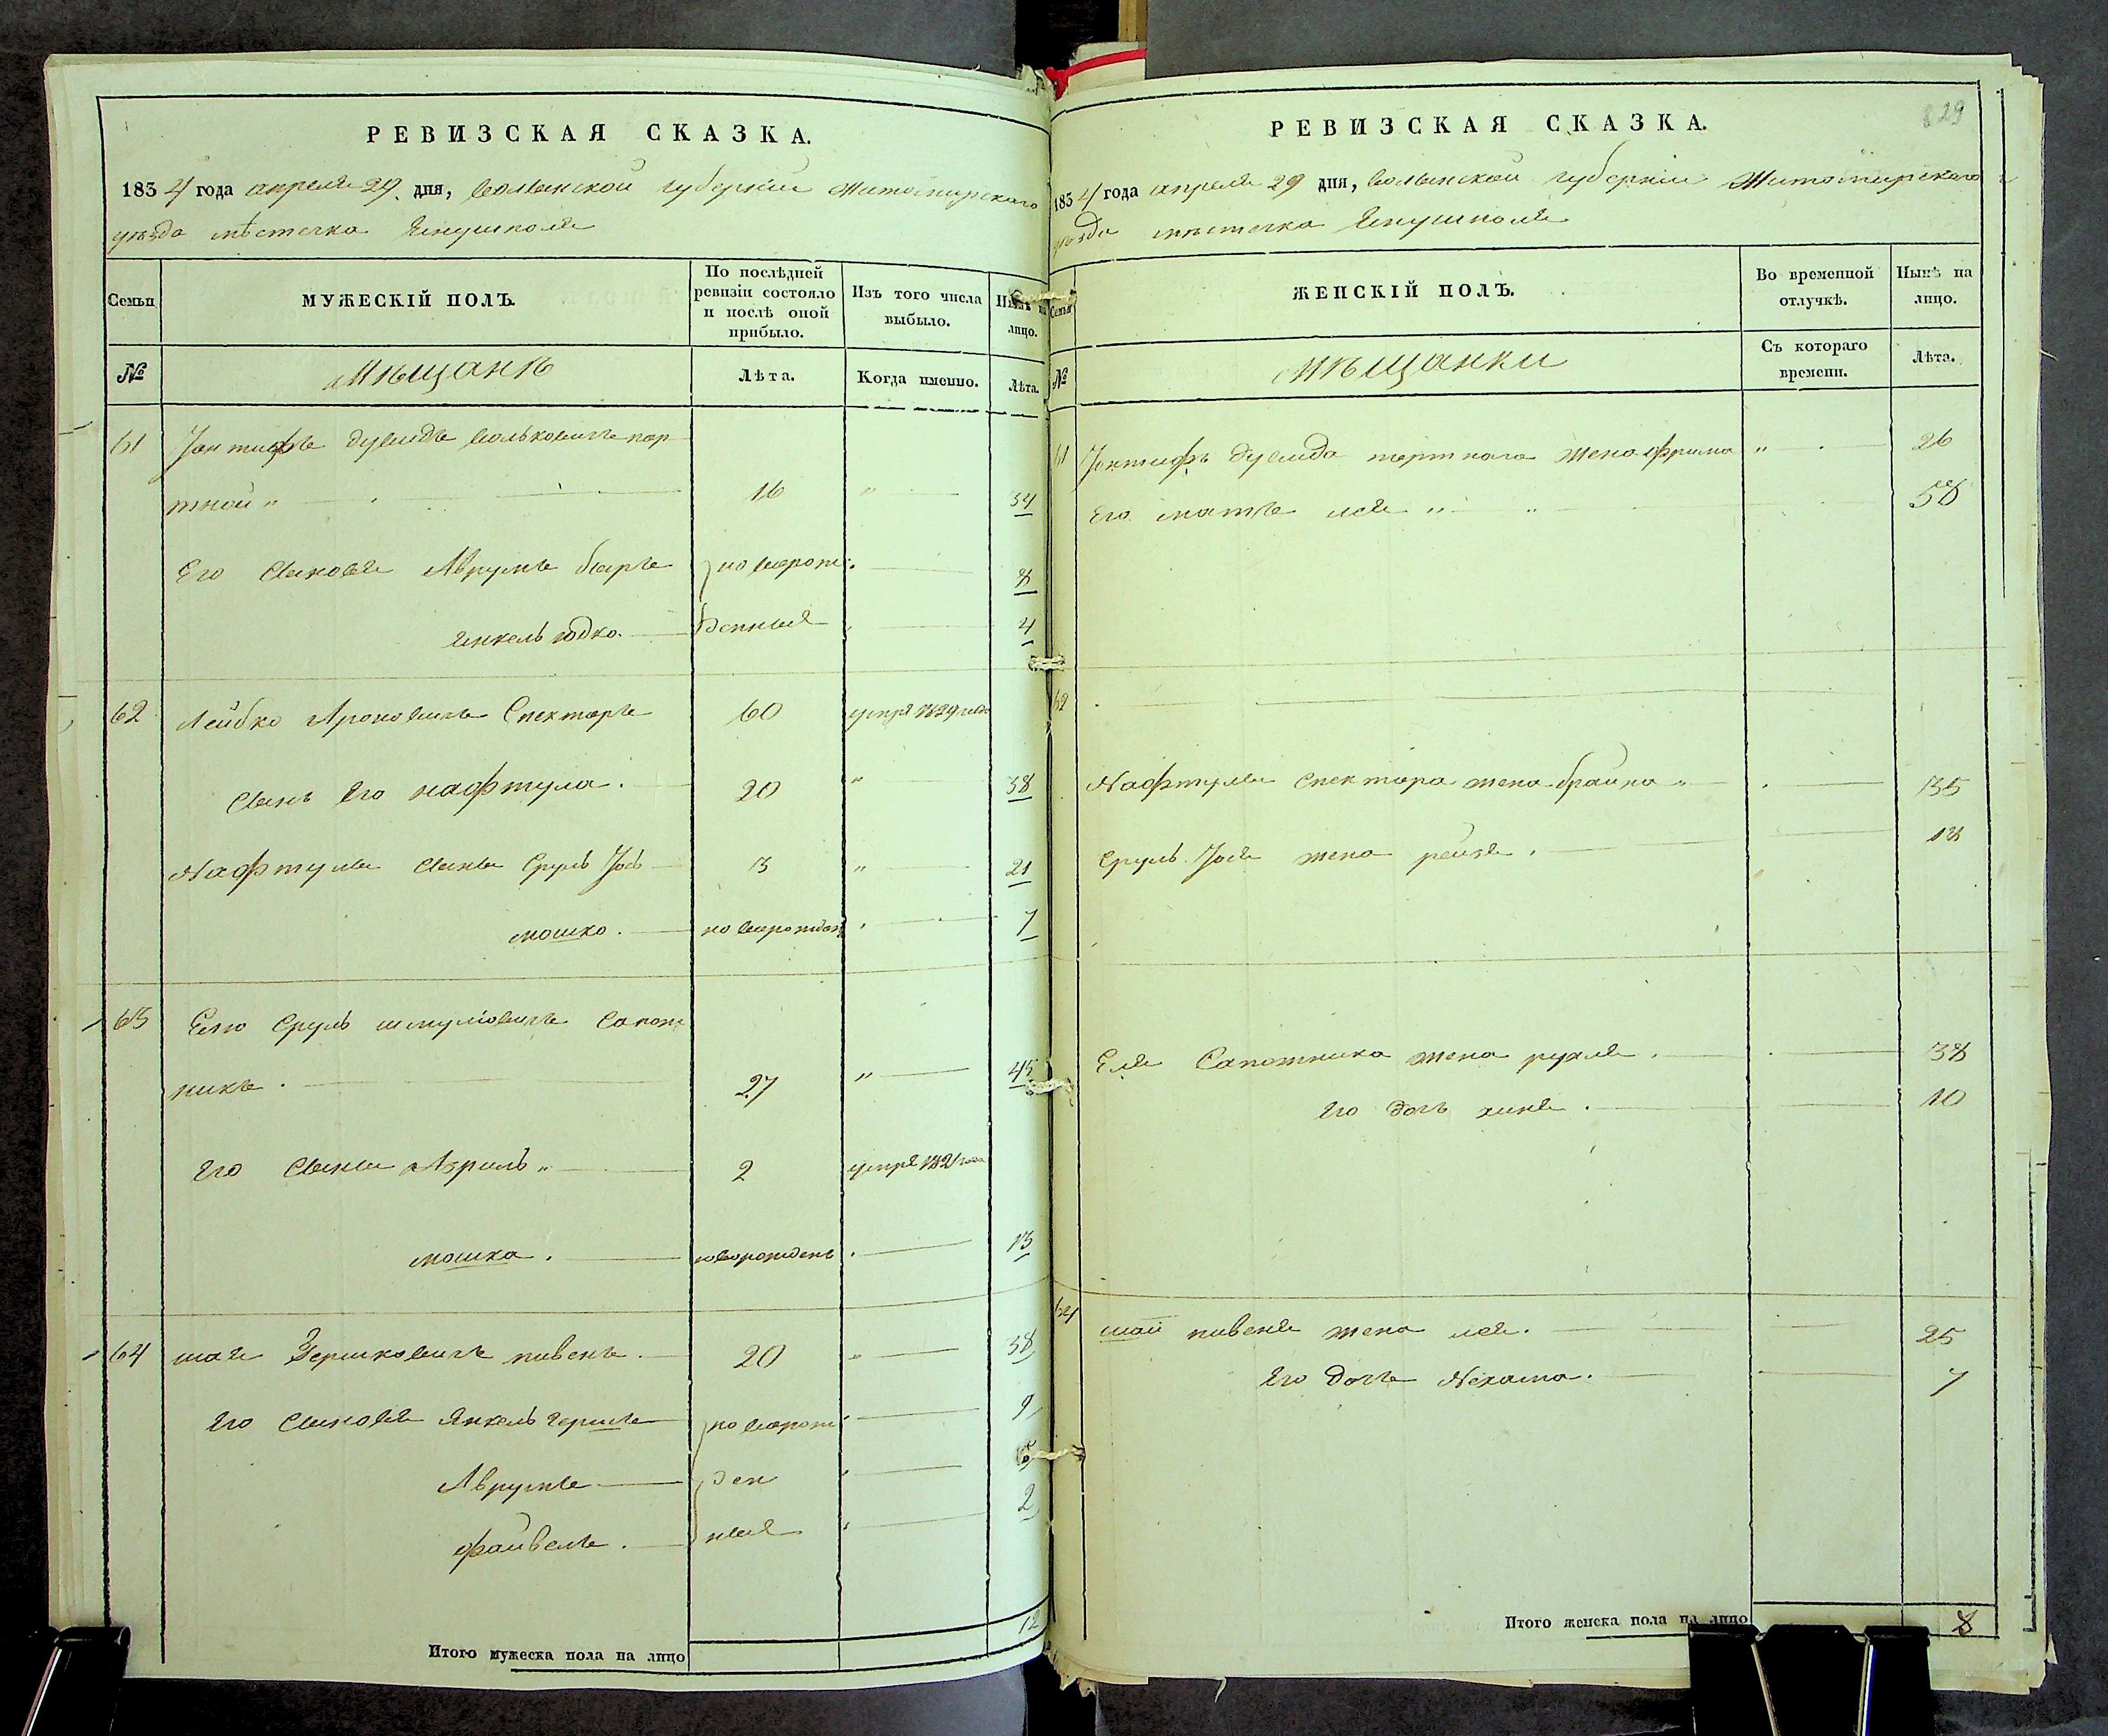 РЕВИЗСКАЯ СКАЗКА.
1834 года апреля 29 дня, волынской губернии Житомирского
уезда мѣстечка Янушполя
Семьи
МУЖЕСКІЙ ПОЛЪ.
По послѣдней ревизіи состояло и послѣ оной прибыло.
Изъ того числа выбыло.
Нынѣ на лицо.
№
Мѣщанъ
Лѣта.
Когда именно.
Лѣта.
61 Іонтифъ дувидъ вольковичъ пор
тной " 16 " 34
Его сыновя Аврумъ беръ новорож 8
янкель юдко. денныя 4
62 Лейбко Ароновичъ Спекторъ 60 умре 1829 года
сынъ его нафтула. 20 " 38
Нафтулы сыны Сруль Іось 3 " 21
мошко. новорожден 7
63 Елю Сруль шмулювичъ Сапож
никъ. 27 " 45
Его сыны Азриль " 2 умре 1821 года
мошка. новорожденъ 13
64 шая Гершковичъ пивень. 20 " 38
его сыновя Янкель гершъ новорож 9
Аврумъ ден
файвель. ныя 2
12
Итого мужеска пола на лицо
829
РЕВИЗСКАЯ СКАЗКА.
1834 года апреля 29 дня, волынской губерніи Житомирского
уезда мѣстечка Янушполя
Семьи
ЖЕНСКІЙ ПОЛЪ.
Во временной отлучкѣ.
Нынѣ на лицо.
№
мѣщанки
Съ котораго времени.
Лѣта.
61 Іонтифъ дувида портного жена фрима " 26
Его матъ лея " " 58
62
Нафтулы спектора жена брайна " 35
Сруль Іося жена рейзя. 18
Еля Сапожника жена рухля. 38
его дочъ хиня. 10
64 шаи пивеня жена лея. 25
Его дочъ Нехама. 7
Итого женска пола на лицо 8